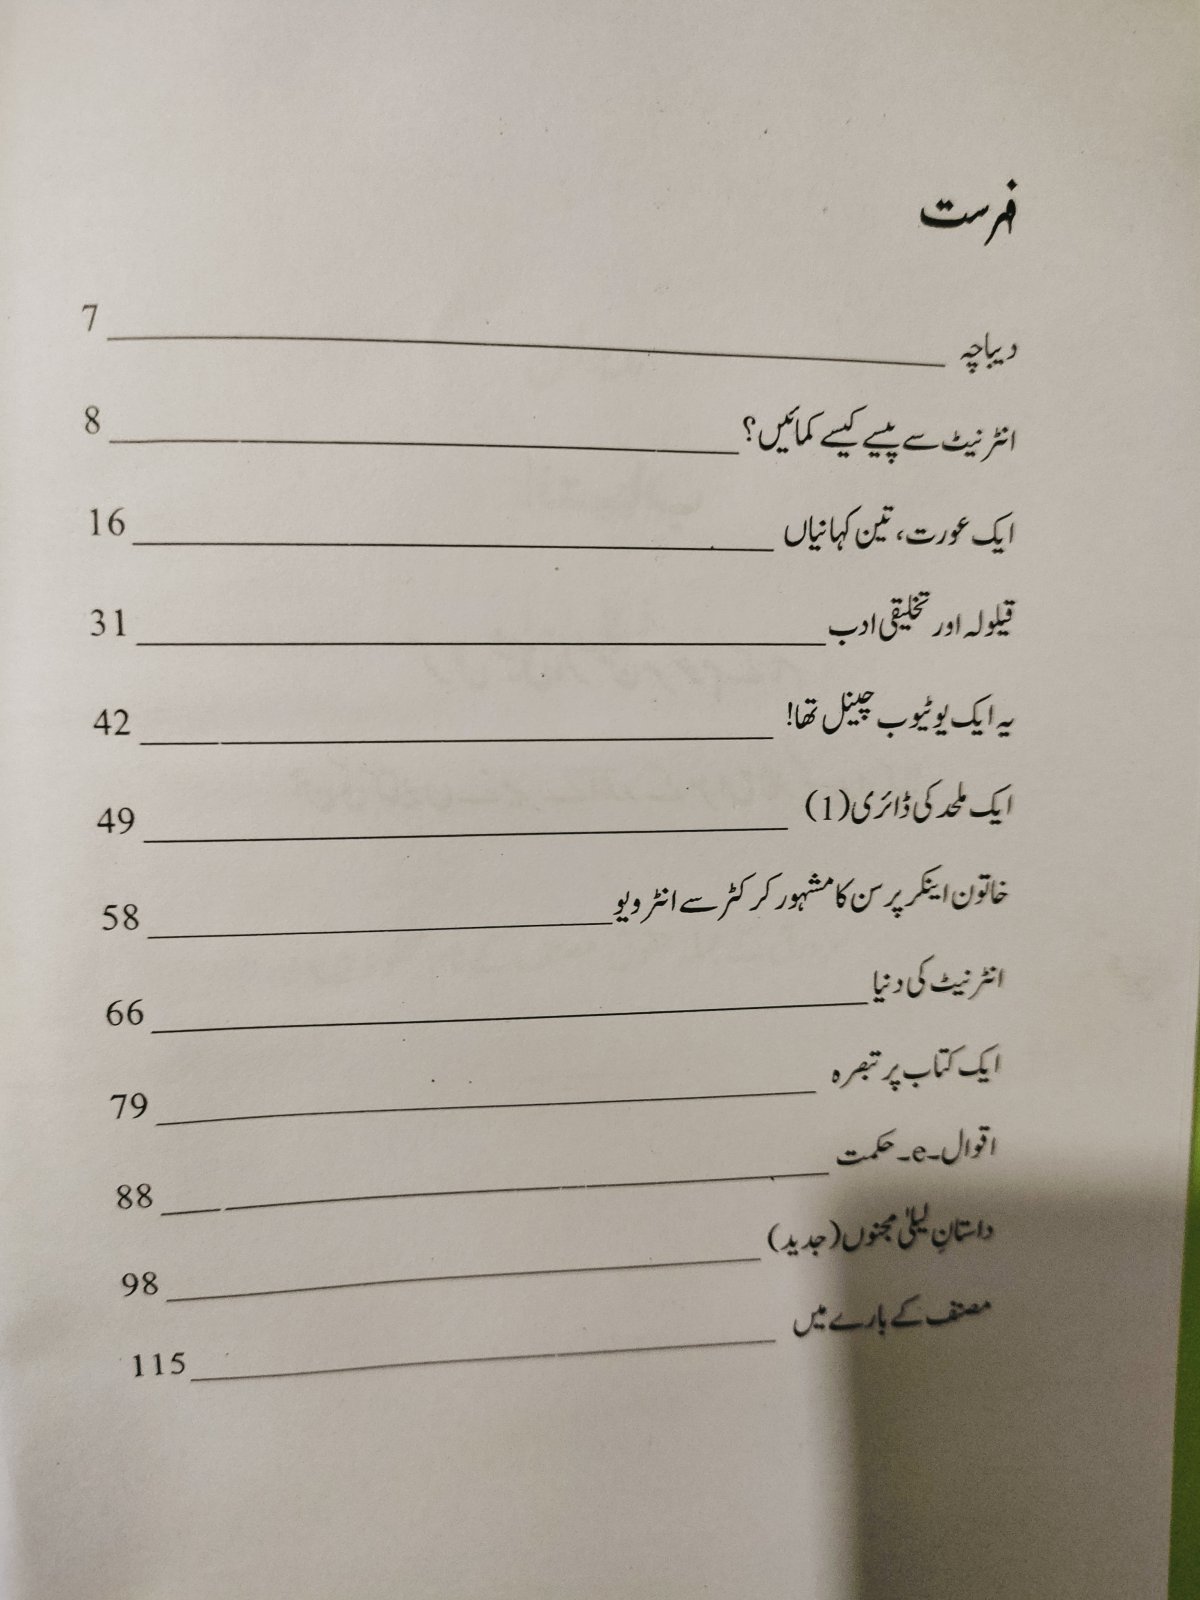 فہرست
دیباچہ 7
انٹرنیٹ سے پیسے کیسے کمائیں؟ 8
ایک عورت، تین کہانیاں 16
قیلولہ اور تخلیقی ادب 31
یہ ایک یوٹیوب چینل تھا! 42
ایک ملحد کی ڈائری (1) 49
خاتون اینکر پرسن کا مشہور کرکٹر سے انٹرویو 58
انٹرنیٹ کی دنیا 66
ایک کتاب پر تبصرہ 79
اقوال۔e۔حکمت 88
داستانِ لیلیٰ مجنوں (جدید) 98
مصنف کے بارے میں 115